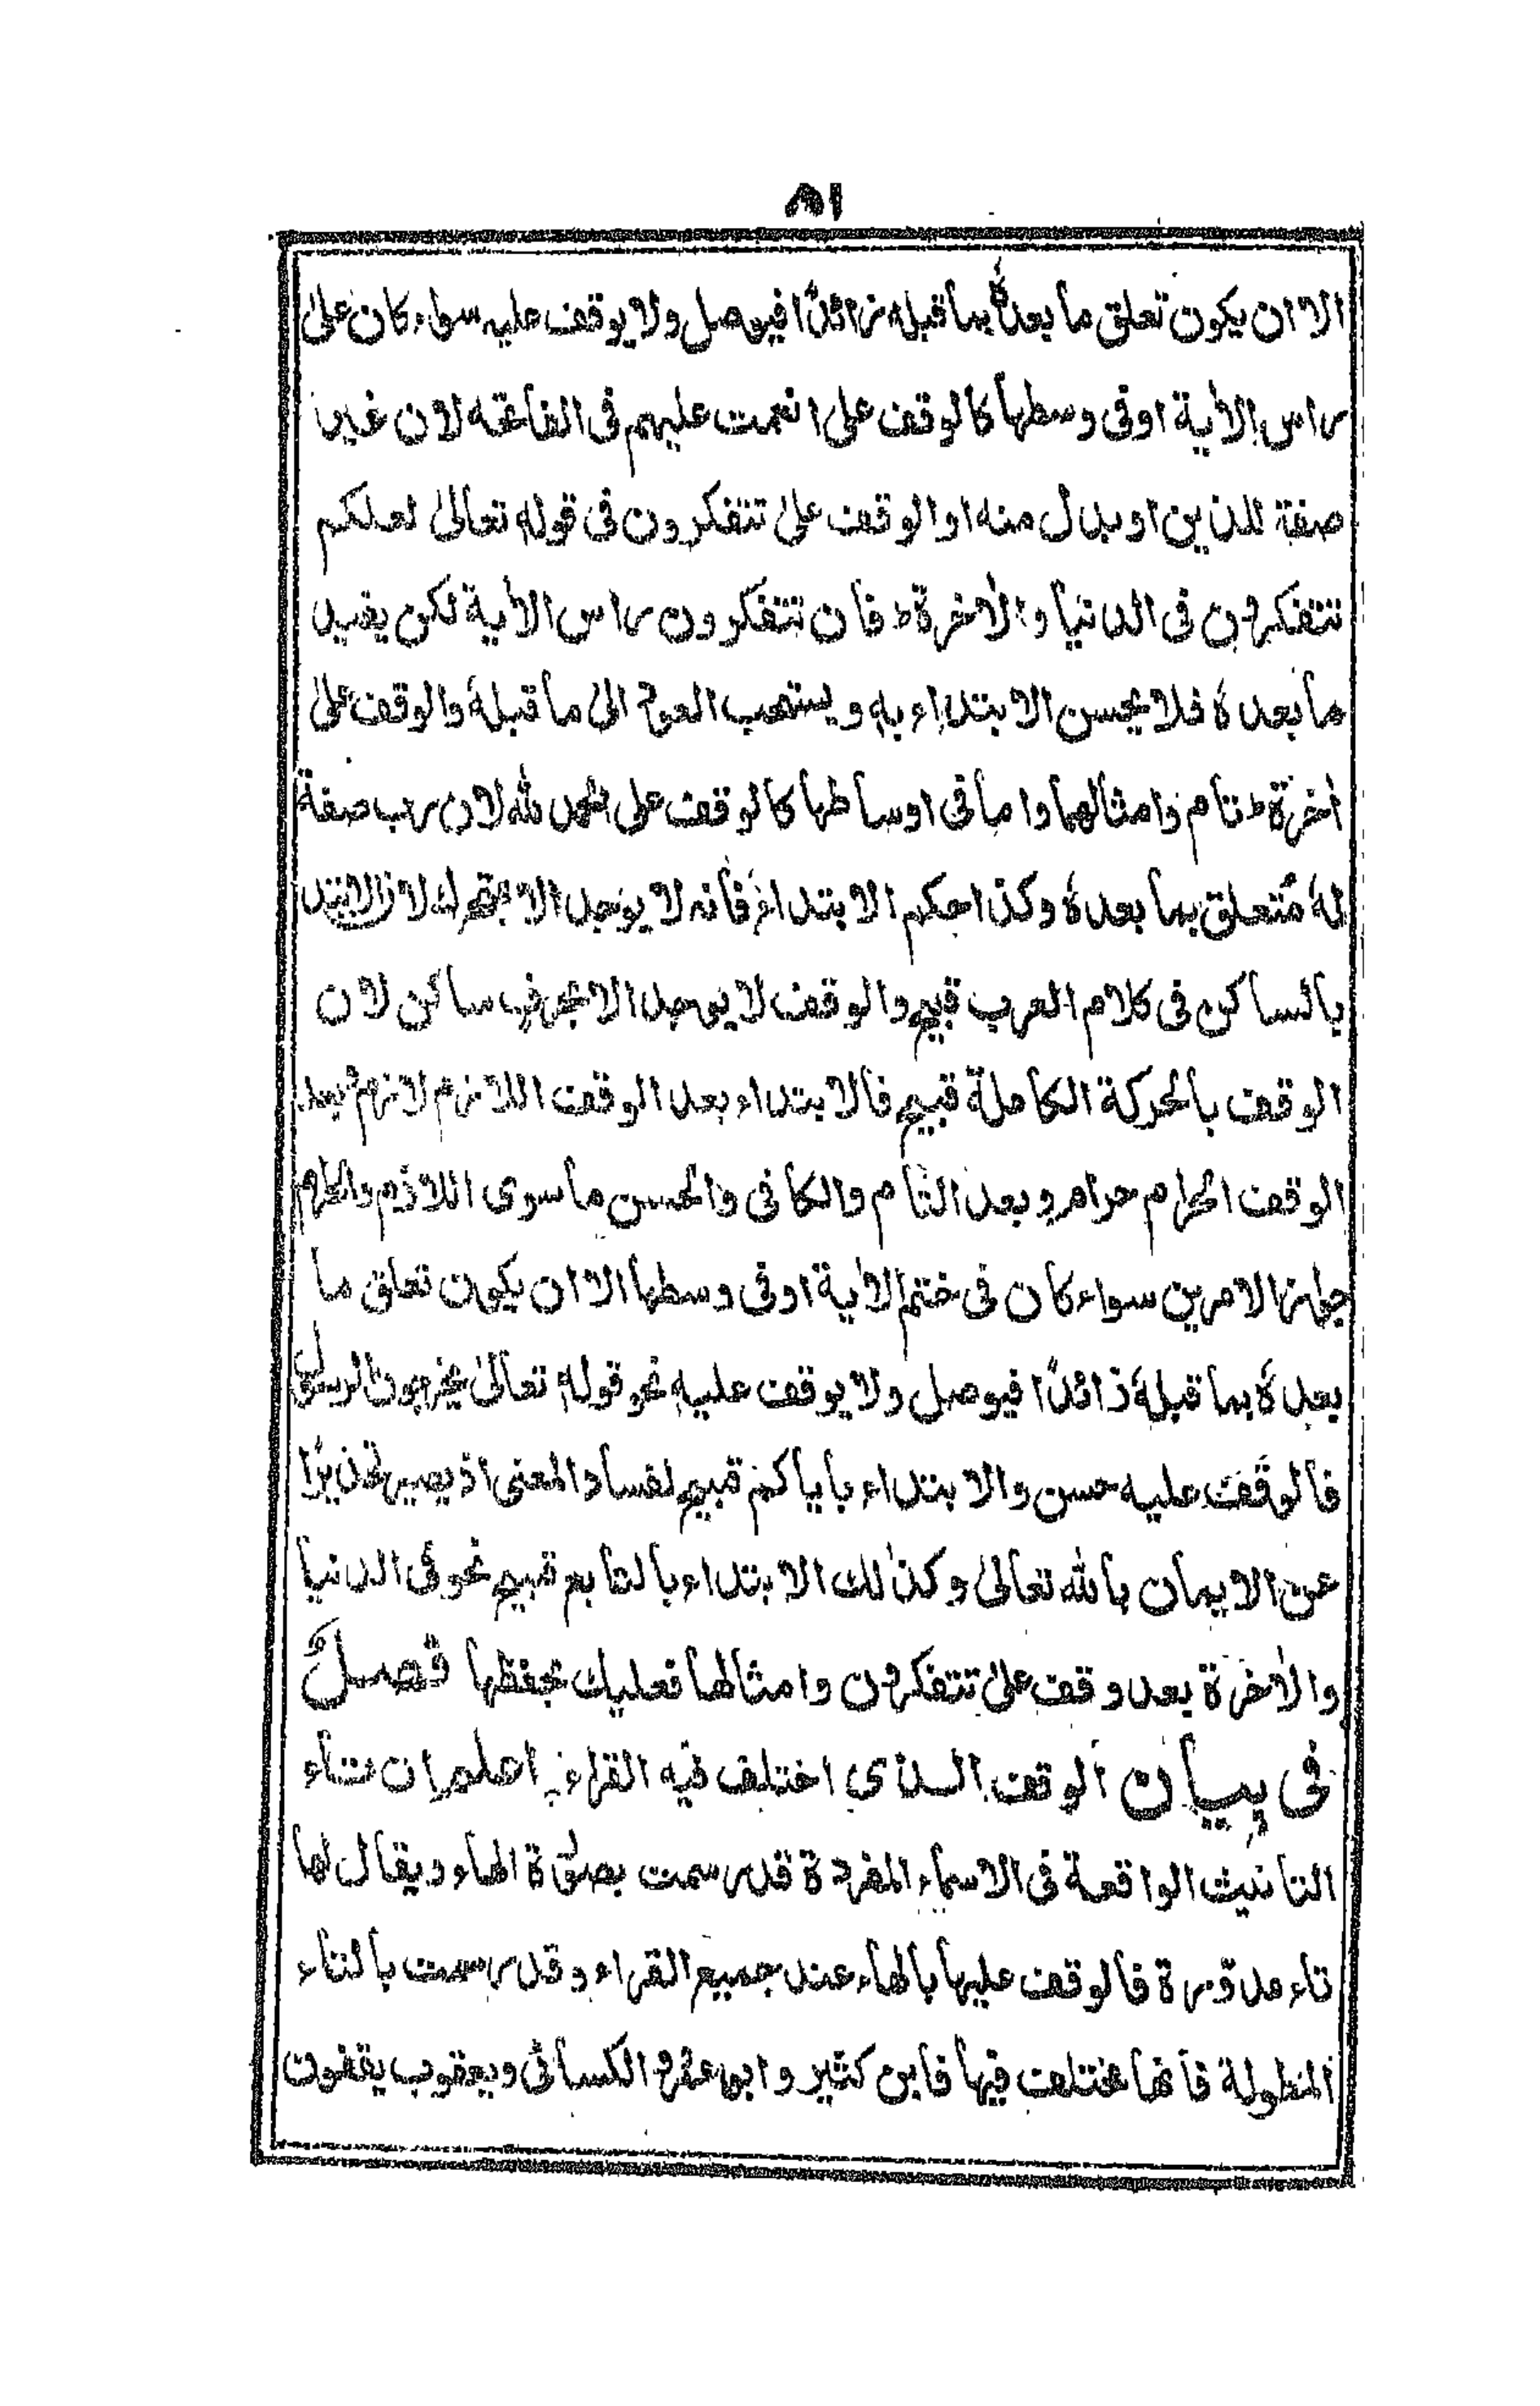 ٨١
الا ان يكون تعلق ما بعدهٗ بما قبلہ زائدًا فيوصل ولا يوقف عليه سواء كان علىٰ
راس الاٰية او فى وسطها كالوقف على انعمت عليهم فى الفاتحه لان غير
صفة للذين او بدل منه او الوقف علىٰ تتفكرون فى قولهٖ تعالىٰ لعلكم
تتفكرون فى الدنيا والاٰخرة ط فان تتفكرون راس الاٰية لكن يفيد
ما بعدهٗ فلا يحسن الابتداء بهٖ ويستحب العود الىٰ ما قبلهٗ والوقف علىٰ
اٰخرة ط تام وامثالهما واما فى اوساطها كالوقف على الحمد لله لان رب صفة
لهٗ متعلق بما بعدهٗ وكذا حكم الابتداء فانه لا يوجد الا بتحرك لان الابتداء
بالساكن فى كلام العرب قبيح والوقف لا يوجد الا بحرف ساكن لان
الوقف بالحركة الكاملة قبيح فالابتداء بعد الوقف اللازم لازم وبعد
الوقف الحرام حرام وبعد التام والكافى والحسن ما سوى اللازم والحرام
جائز الامرين سواء كان فى ختم الاٰية او فى وسطها الا ان يكون تعلق ما
بعدهٗ بما قبلهٗ زائدًا فيوصل ولا يوقف عليهٖ نحو قولهٖ تعالىٰ يخرجون الرسول
فالوقف عليه حسن والابتداء باياكم قبيح لفساد المعنى اذ يصير تحذيرًا
عن الايمان بالله تعالىٰ وكذٰلك الابتداء بالتابع قبيح نحو فى الدنيا
والاٰخرة بعد وقف علىٰ تتفكرون وامثالها فعليك تحفظها فصلٌ
فى بيان الوقف الذى اختلف فيه القراء اعلم ان تاء
التانيث الواقعة فى الاسماء المفردة قد رسمت بصورة الهاء ويقال لها
تاء مدورة فالوقف عليها بالهاء عند جميع القراء وقد رسمت بالتاء
المطولة فانها مختلف فيها فابن كثير وابو عمرو والكسائى ويعقوب يقفون